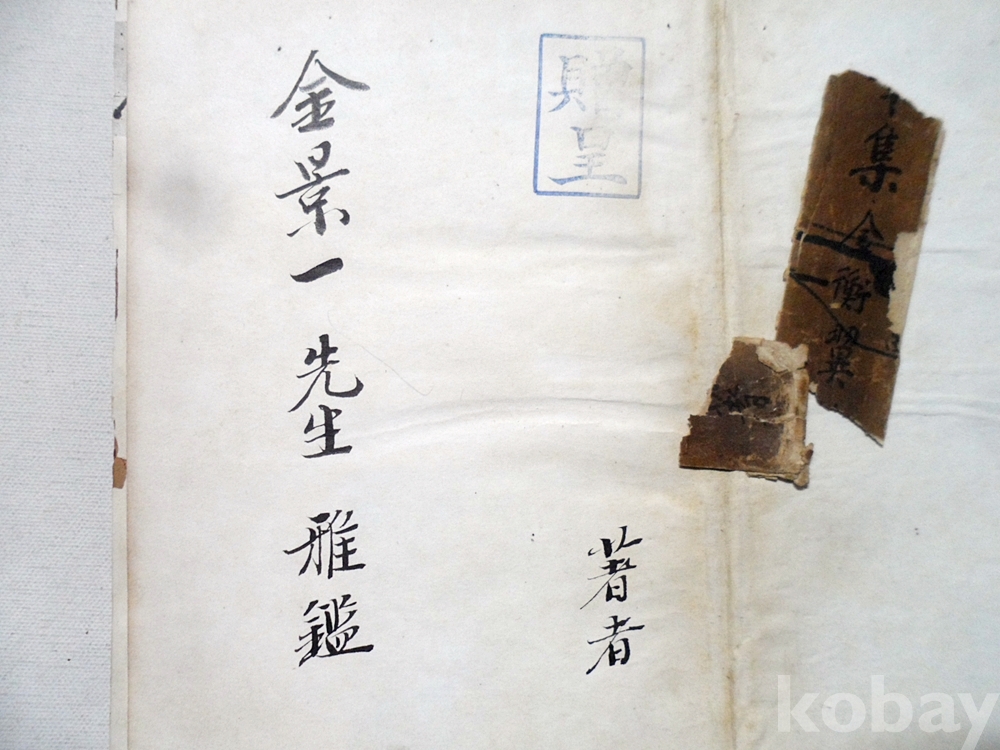 集·金衡翼
贈呈
著者
金景一 先生 雅鑑
kobay